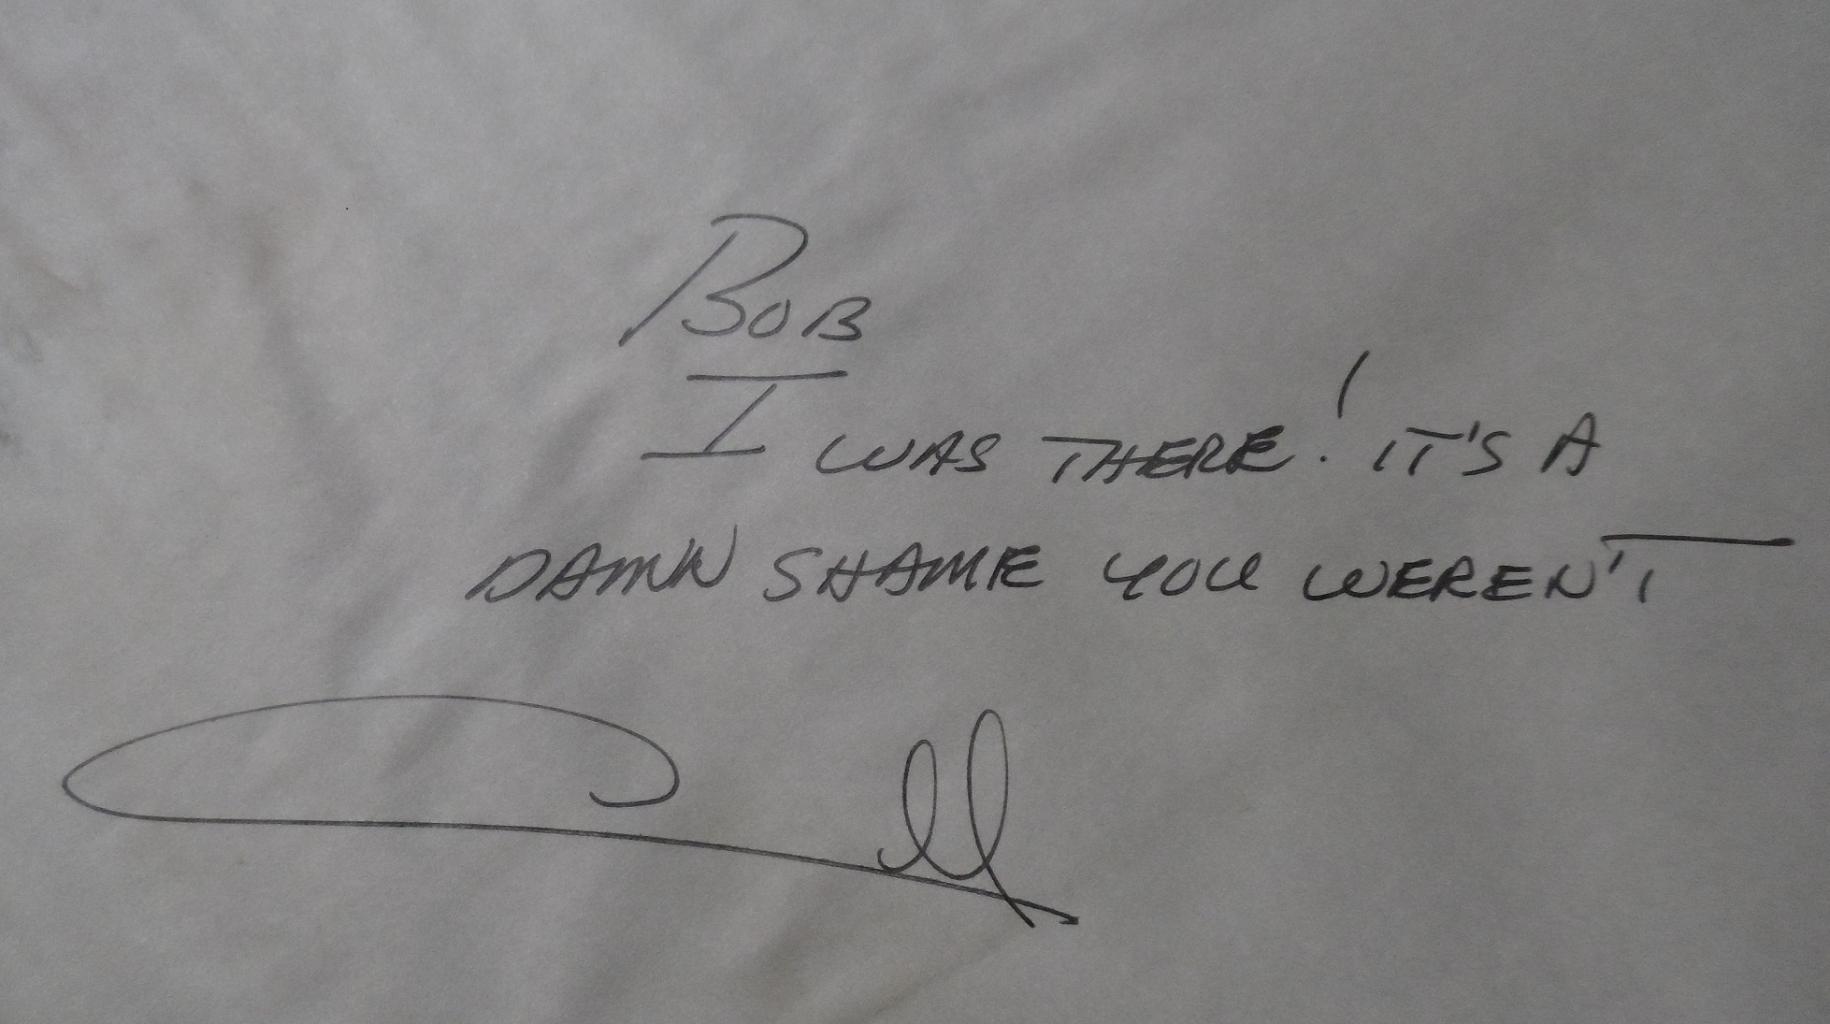 BOB
I WAS THERE! IT'S A
DAMN SHAME YOU WEREN'T